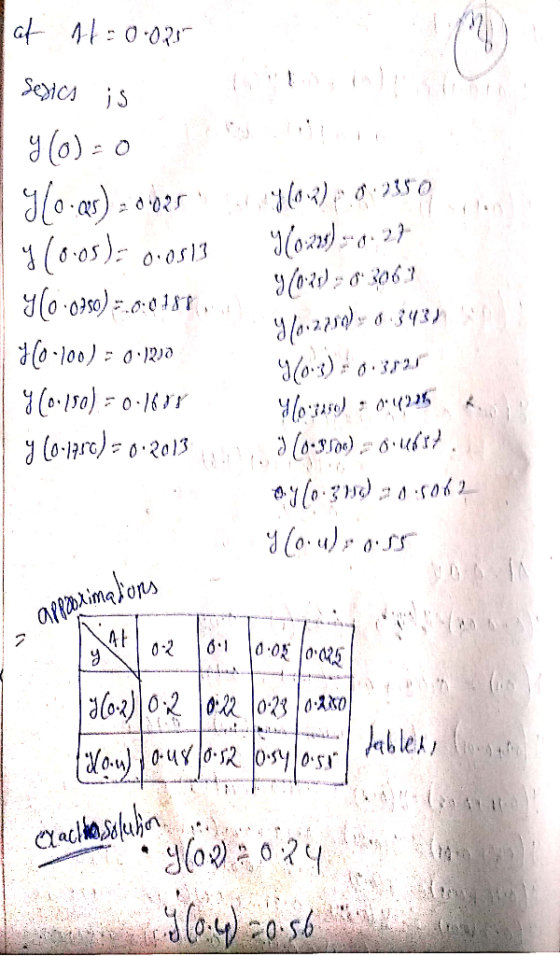 at Δt = 0.025
Series is
y(0) = 0
y(0.025) = 0.025
y(0.05) = 0.0513
y(0.0750) = 0.0788
y(0.100) =
y(0.150) = 0.1688
y(0.1750) = 0.2013
y(0.2) = 0.2350
y(0.225) = 0.27
y(0.25) = 0.3063
y(0.2750) = 0.3438
y(0.3) = 0.3825
y(0.3250) =
y(0.3500) = 0.4637
y(0.3750) = 0.5062
y(0.4) = 0.55
= approximations
y Δt 0.2 0.1 0.05 0.025
y(0.2) 0.2 0.22 0.23 0.2350
y(0.4) 0.48 0.52 0.54 0.55
table,
exact solution
y(0.2) = 0.24
y(0.4) = 0.56